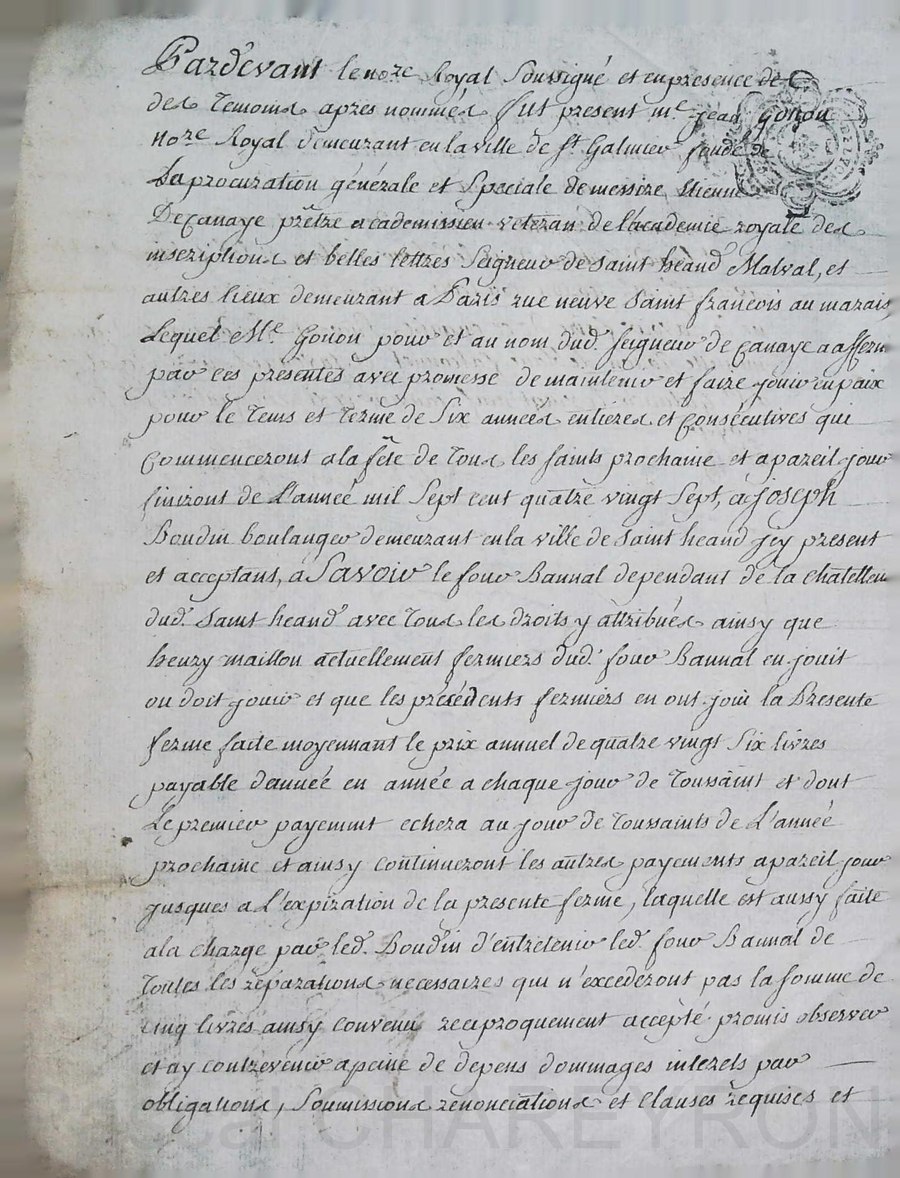 Pardevant le nore Royal Soussigné et en presence de
des Temoins apres nommés fut present me jean Gonon
nore Royal demeurant en la ville de st Galmier fondé de
La procuration générale et Speciale de messire Etienne
De Canaye prêtre academissien veteran de l'academie royale des
inscriptions et belles lettres Seigneur de Saint heand Malval, et
autres lieux demeurant a Paris rue neuve Saint francois au marais,
Lequel Me Gonon pour et au nom dud. Seigneur de Canaye a afferm
par ces presentes avec promesse de maintenir et faire jouir en paix
pour le Tems et Terme de Six années entieres et consécutives qui
commenceront a la fête de Tous les saints prochaine et a pareil jour
finiront de L'année mil Sept cent quatre vingt Sept, a joseph
Boudin boulanger demeurant en la ville de Saint heand jcy present
et acceptant, a Savoir le four Bannal dependant de la chatellen
dud. Saint heand avec Tous les droits y attribués ainsy que
henry maillon actuellement fermiers dud. four Bannal en jouit
ou doit jouir et que les présédents fermiers en ont joui la Presente
ferme faite moyennant le prix annuel de quatre vingt Six livres
payable d'année en année a chaque jour de Toussaint et dont
Le premier payement echera au jour de Toussaints de L'année
prochaine et ainsy continueront les autres payements a pareil jour
jusques a L'expiration de la presente ferme, laquelle est aussy faite
a la charge par led. Boudin d'entretenir led. four Bannal de
Toutes les réparations necessaires qui n'excedéront pas la somme de
cinq livres ainsy convenu reciproquement accepté promis observer
et ay contrevenir a peine de depens dommages interets par
obligations, Soumissions renonciations et Clauses requises et
CHAREYRON